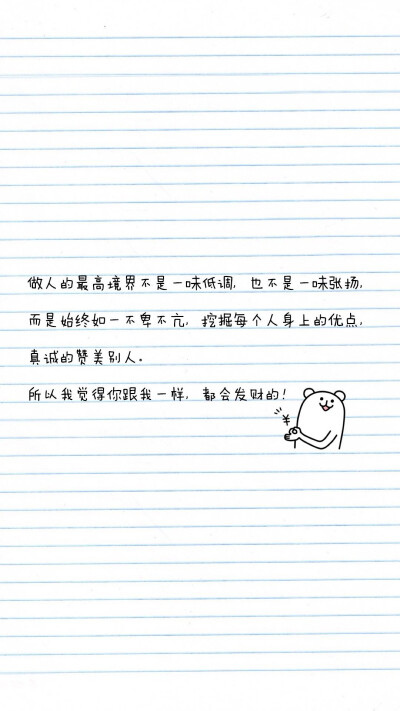 做人的最高境界不是一味低调，也不是一味张扬，
而是始终如一不卑不亢，挖掘每个人身上的优点，
真诚的赞美别人。
所以我觉得你跟我一样，都会发财的！
¥